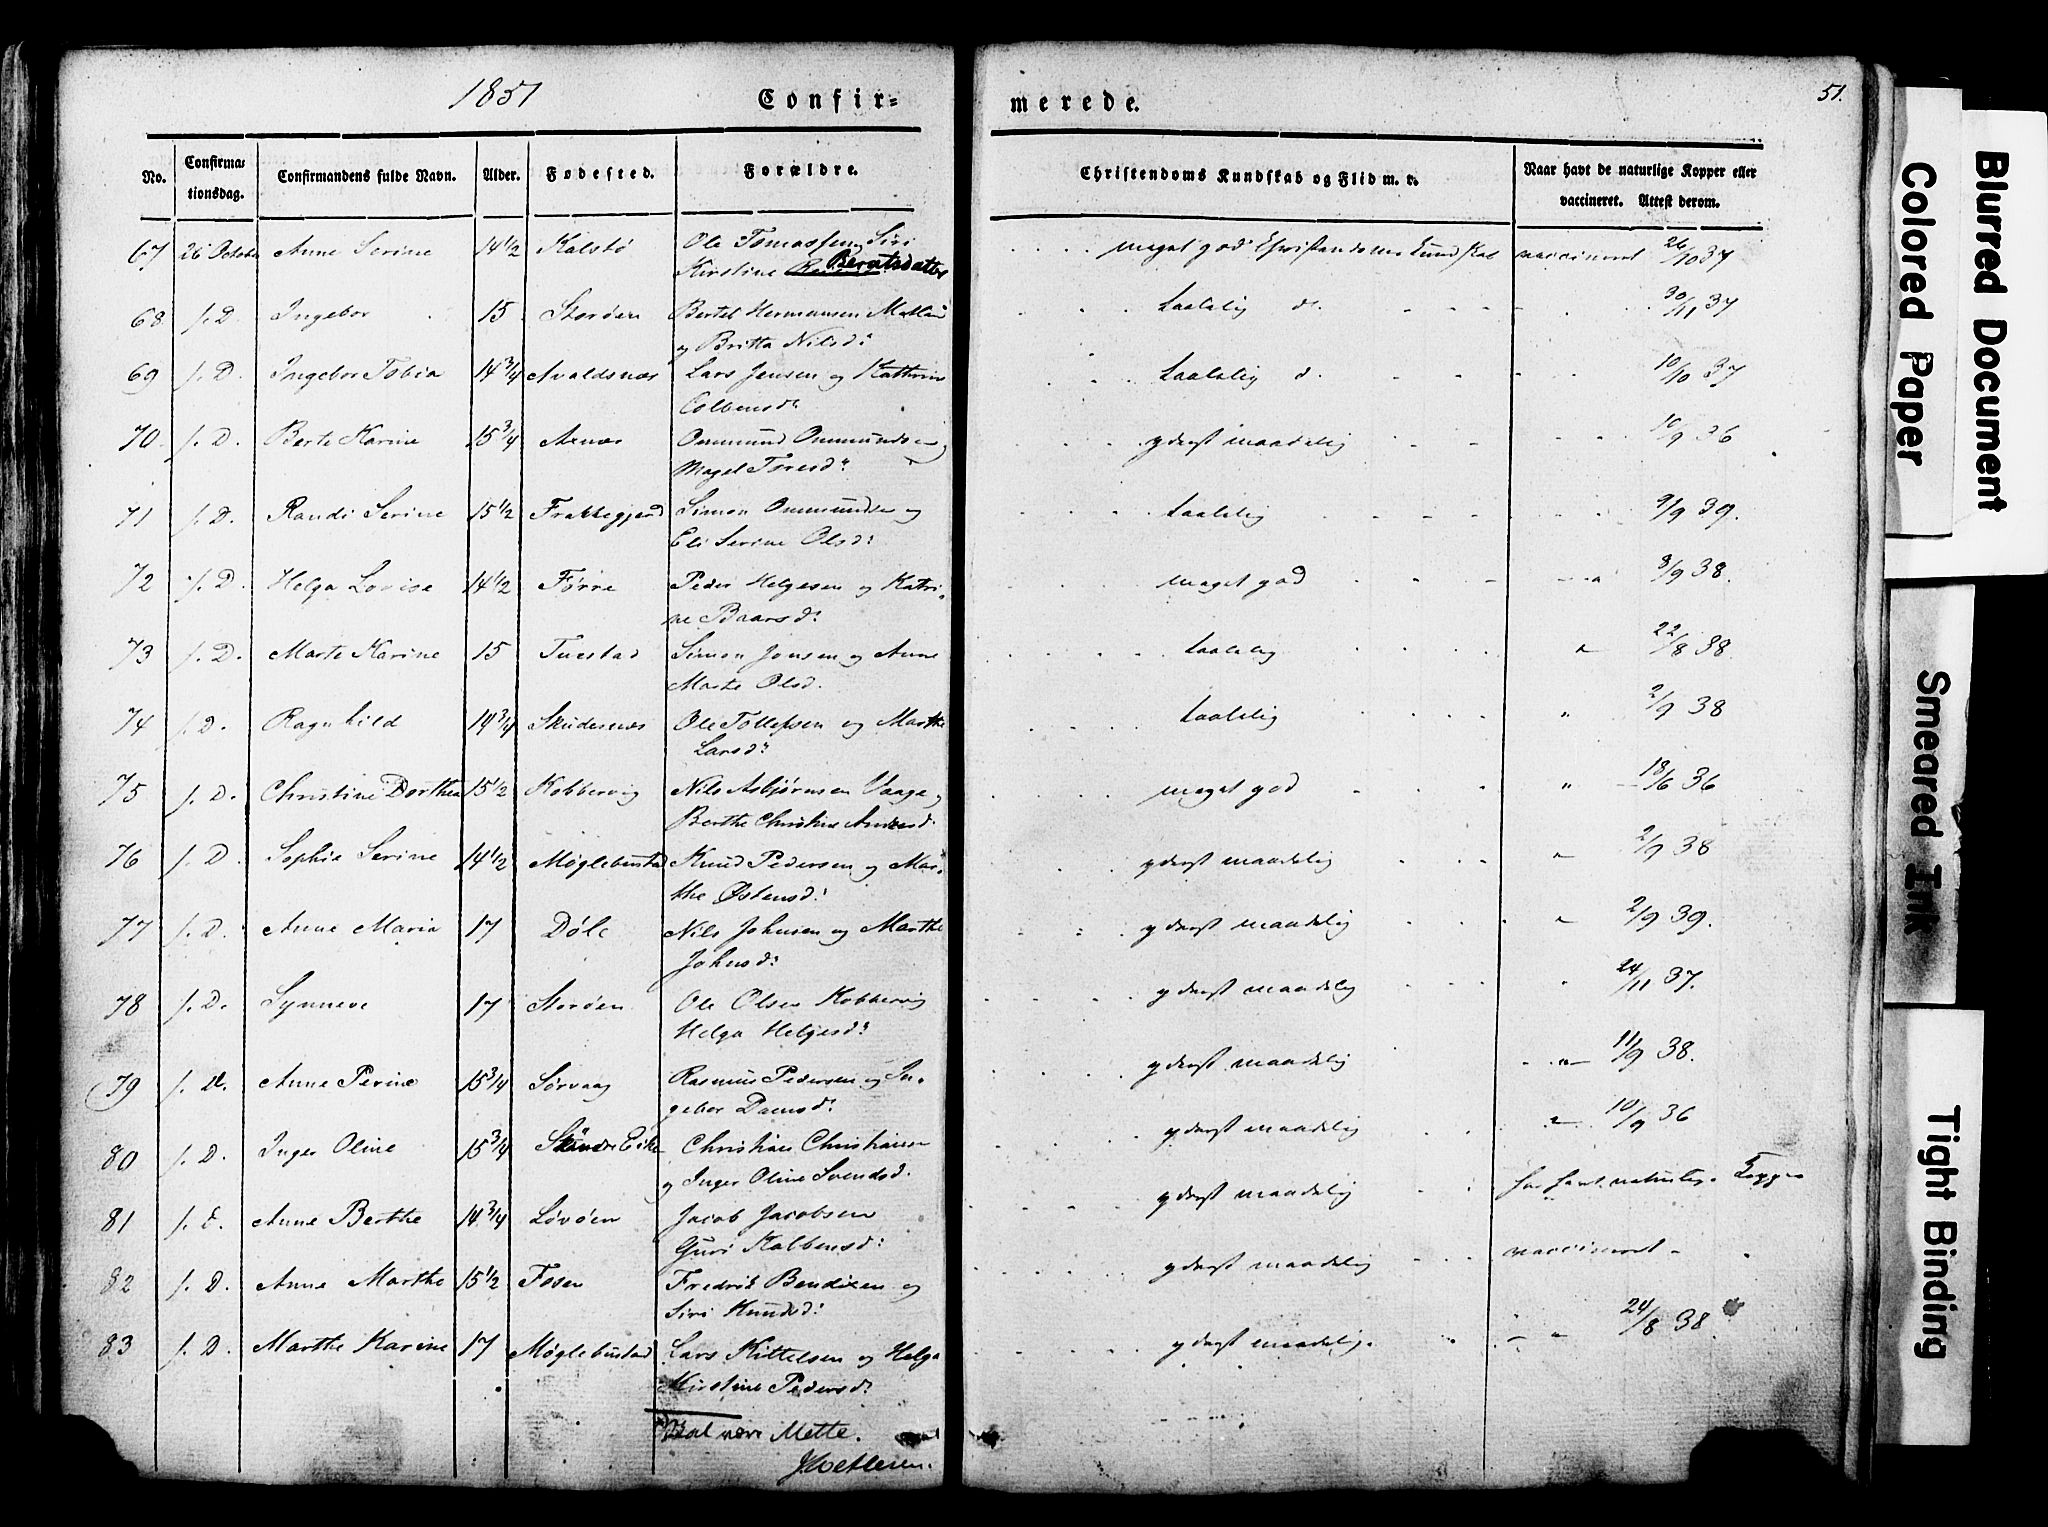 1851 Confir=
merede. 51.
No. Confirma- tionsdag. Confirmandens fulde Navn. Alder. Fødested. Forældre. Christendoms Kundskab og Flid m. v. Naar havt de naturlige Kopper eller vaccineret. Attest derom.
67 26 October Anne Serine 14 1/2 Kalstø Ole Tomassen Siri meget god Christendoms Kundskab vaccineret 26/10 37
Kirstine Berntsdatter
68 f. D. Ingebor 15 Storøen Bertel Hermansen taalelig d. 30/11 37
og Britta Nilsd:
69 f. D. Ingebor Tobia 14 3/4 Avaldsnæs Lars Jensen og Kathrine taalelig d. 10/10 37
Colbensd:
70 f. D. Berte Karine 15 3/4 Aenæs Ommund Ommundsen yderst maadelig 10/9 36
Magel Toresd:
71 f. D. Randi Serine 15 1/2 Frakkegjerd Simon Ommundsen og taalelig 9/9 39.
Eli Serine Olsd:
72 f. D. Helga Lovise 14 1/2 Førre Peder Helgesen og Katri- meget god 3/9 38.
ne Baarsd:
73 f. D. Marte Karine 15 Tuestad Simon Jonsen og Anne taalelig " 22/8 38.
Marte Olsd.
74 f. D. Ragnhild 14 3/4 Skudesnæs Ole Tollefsen og Marthe taalelig " 2/9 38
Larsd:
75 f. D. Christine Dorthea 15 1/2 Kobbervig Nils Asbjørnsen Vaage og meget god " 18/6 36
Berthe Christine Andersd.
76 f. D. Sophie Serine 14 1/2 Møglebustad Knud Pedersen og Mar- yderst maadelig " 2/9 38
the Østensd:
77 f. D. Anne Maria 17 Døle Nils Johnsen og Marthe yderst maadelig " 2/9 39.
Johnsd:
78 f. D. Synneve 17 Storøen Ole Olsen Kobbervig yderst maadelig " 24/11 37.
Helga Helgesd:
79 f. D. Anne Perine 15 3/4 Sørvaag Rasmus Pedersen og In- yderst maadelig " 11/9 38.
gebor Damsd:
80 f. D. Inger Oline 15 3/4 Søndre Eike Christian Christiansen yderst maadelig " 10/9 36
og Inger Oline Svendsd.
81 f. D. Anne Berthe 14 3/4 Løvøen Jacob Jacobsen yderst maadelig har havt naturlige Kopper
Guri Kolbensd:
82 f. D. Anne Marthe 15 1/2 Fosen Fredrik Bendixen og yderst maadelig vaccineret
Siri Knudsd:
83 f. D. Marthe Karine 17 Møglebustad Lars Kittelsen og Helga yderst maadelig. " 24/8 38.
Kirstine Pedersd:
Skal være Mette.
Blurred Document
Colored Paper
Smeared Ink
Tight Binding